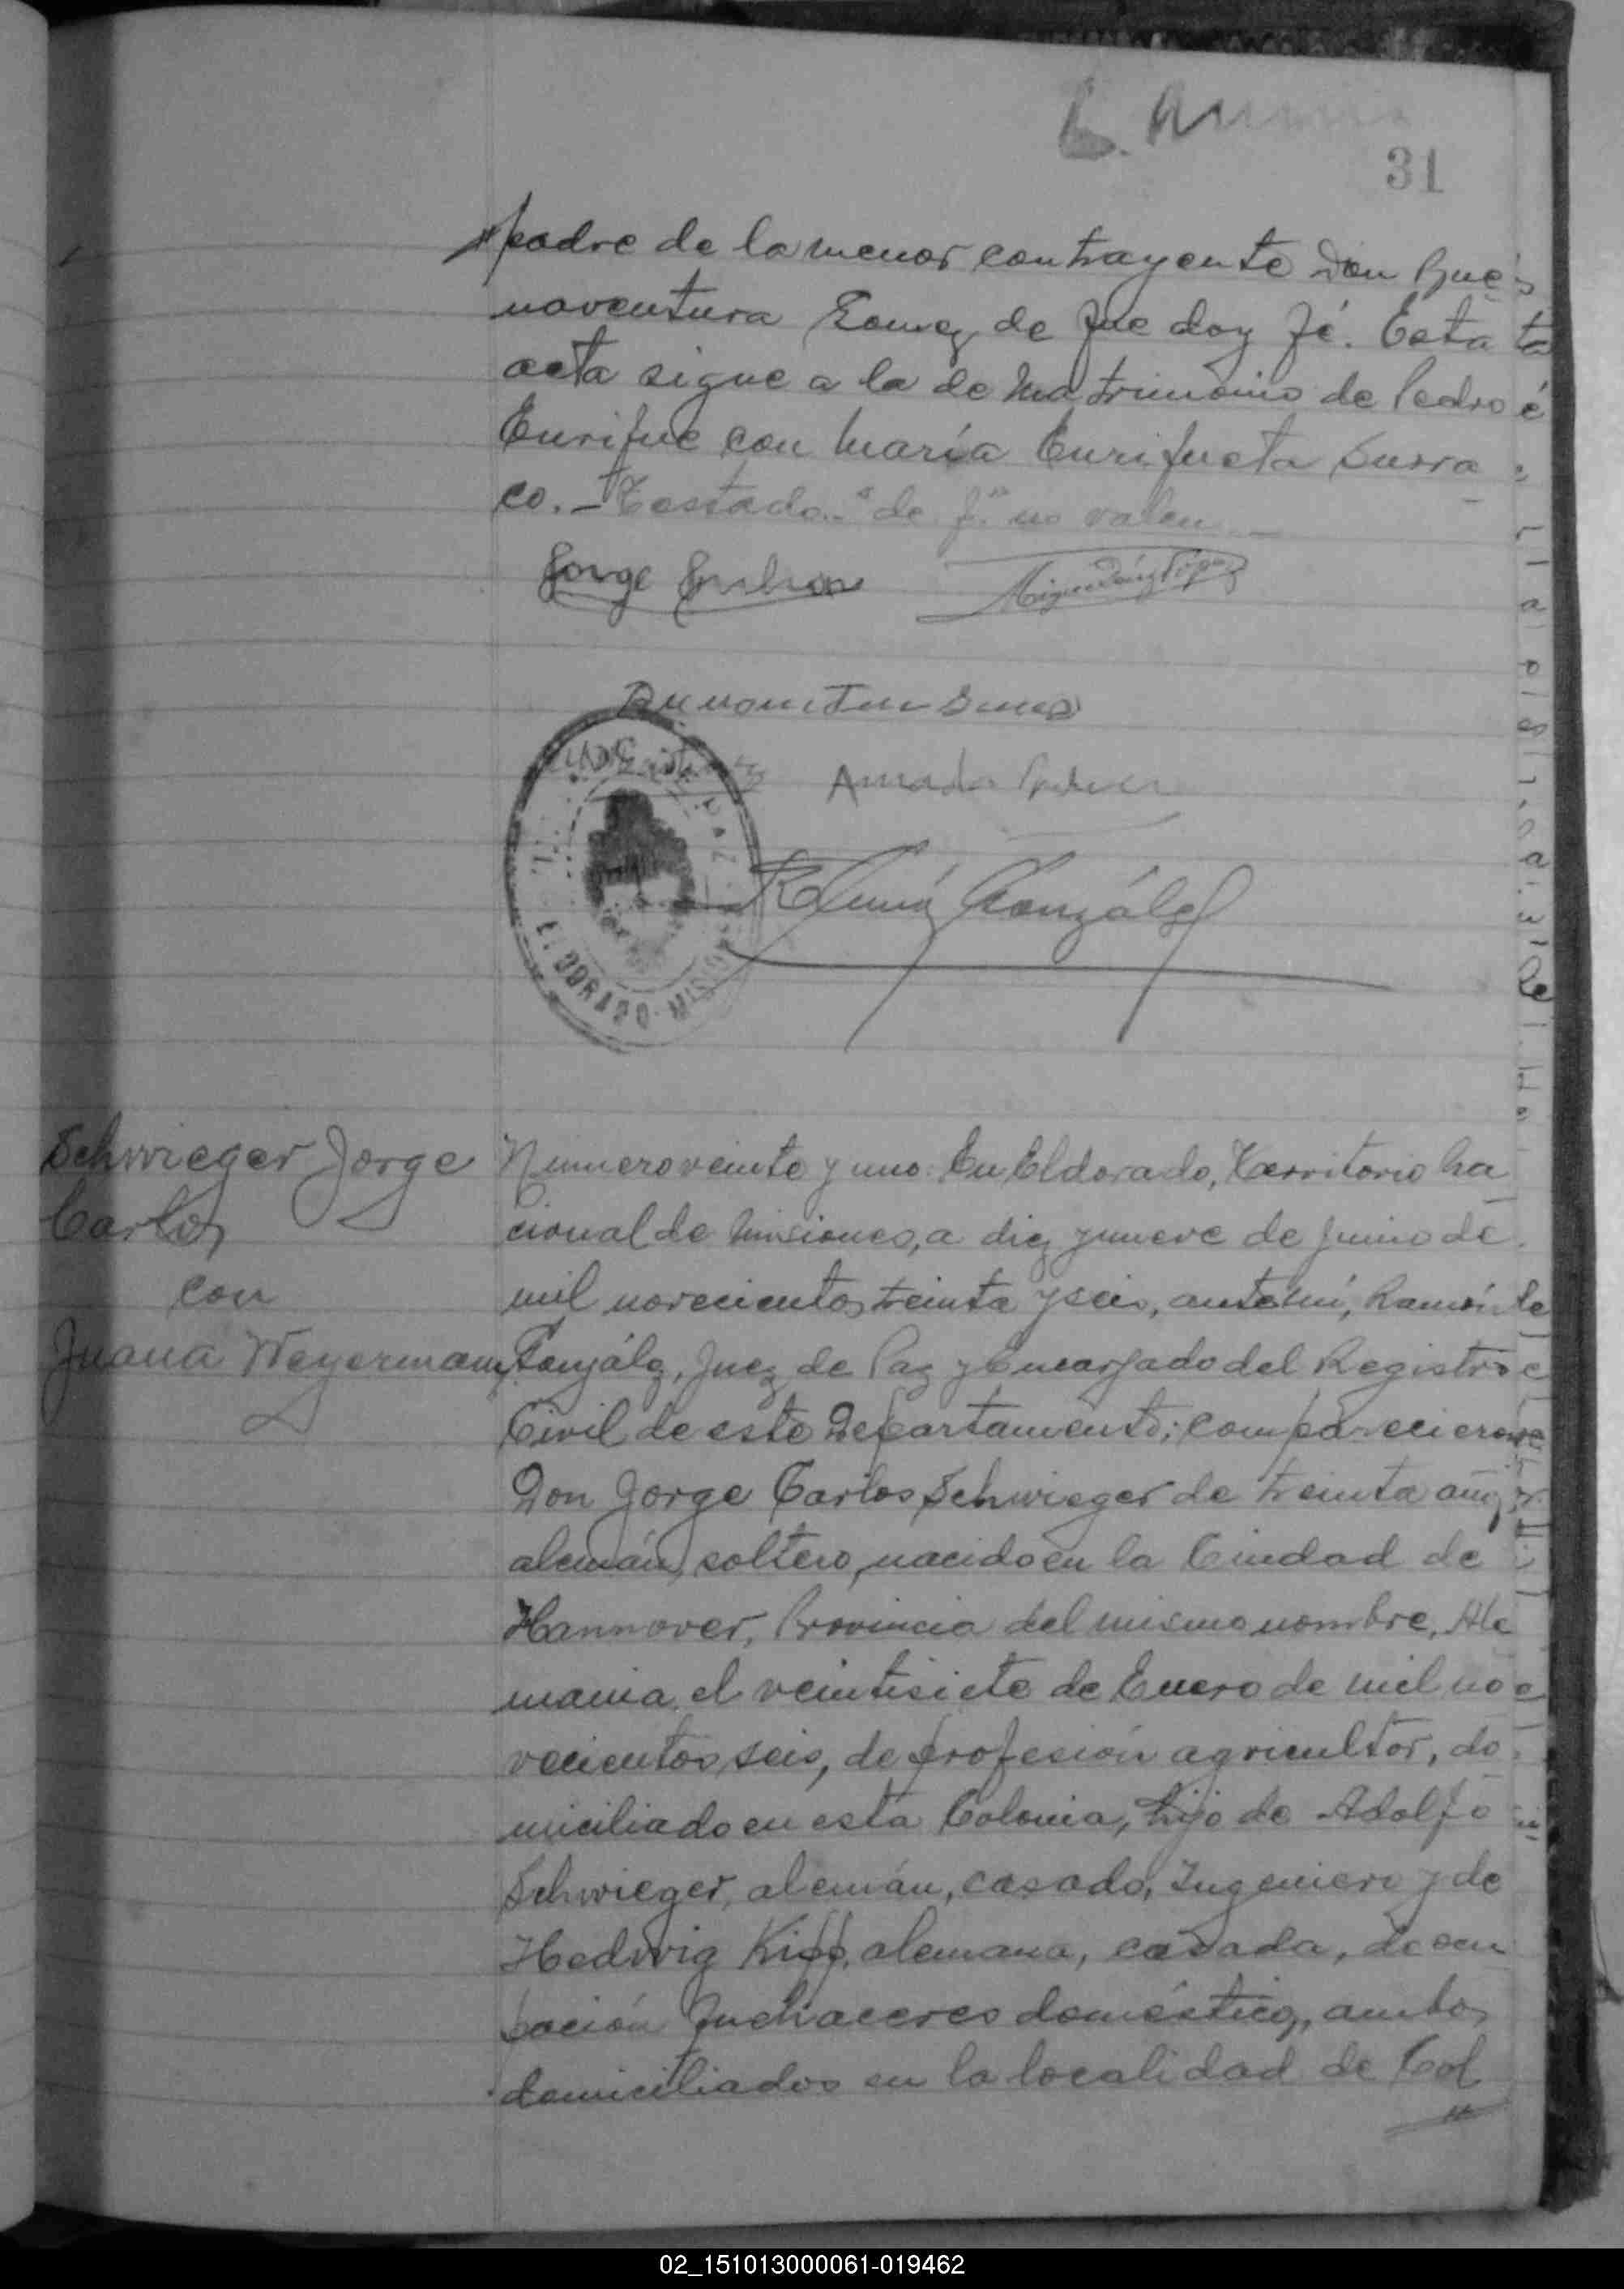 31
padre de la menor contrayente Don Bue
naventura Gomez, de que doy fé. Esta
acta sigue a la de matrimonio de Pedro
Enrique con María Enriqueta Surra
co. – Testado: "de f" no valen –
Jorge
Amada
Ramón González
ELDORADO - MISIONES
Schwieger Jorge
Carlos
con
Juana Weyermann
Numero veinte y uno. En Eldorado, Territorio Na
cional de Misiones, a diez y nueve de Junio de
mil novecientos treinta y seis, ante mí, Ramón
González, Juez de Paz y Encargado del Registro
Civil de este Departamento; comparecieron
Don Jorge Carlos Schwieger de treinta años
alemán, soltero, nacido en la Ciudad de
Hannover, Provincia del mismo nombre, Ale
mania, el veintisiete de Enero de mil no
vecientos seis, de profesión agricultor, do
miciliado en esta Colonia, hijo de Adolfo
Schwieger, alemán, casado, Ingeniero y de
Hedwig Kipp, alemana, casada, de ocu
pación quehaceres domésticos, ambos
domiciliados en la localidad de Col
02_151013000061-019462